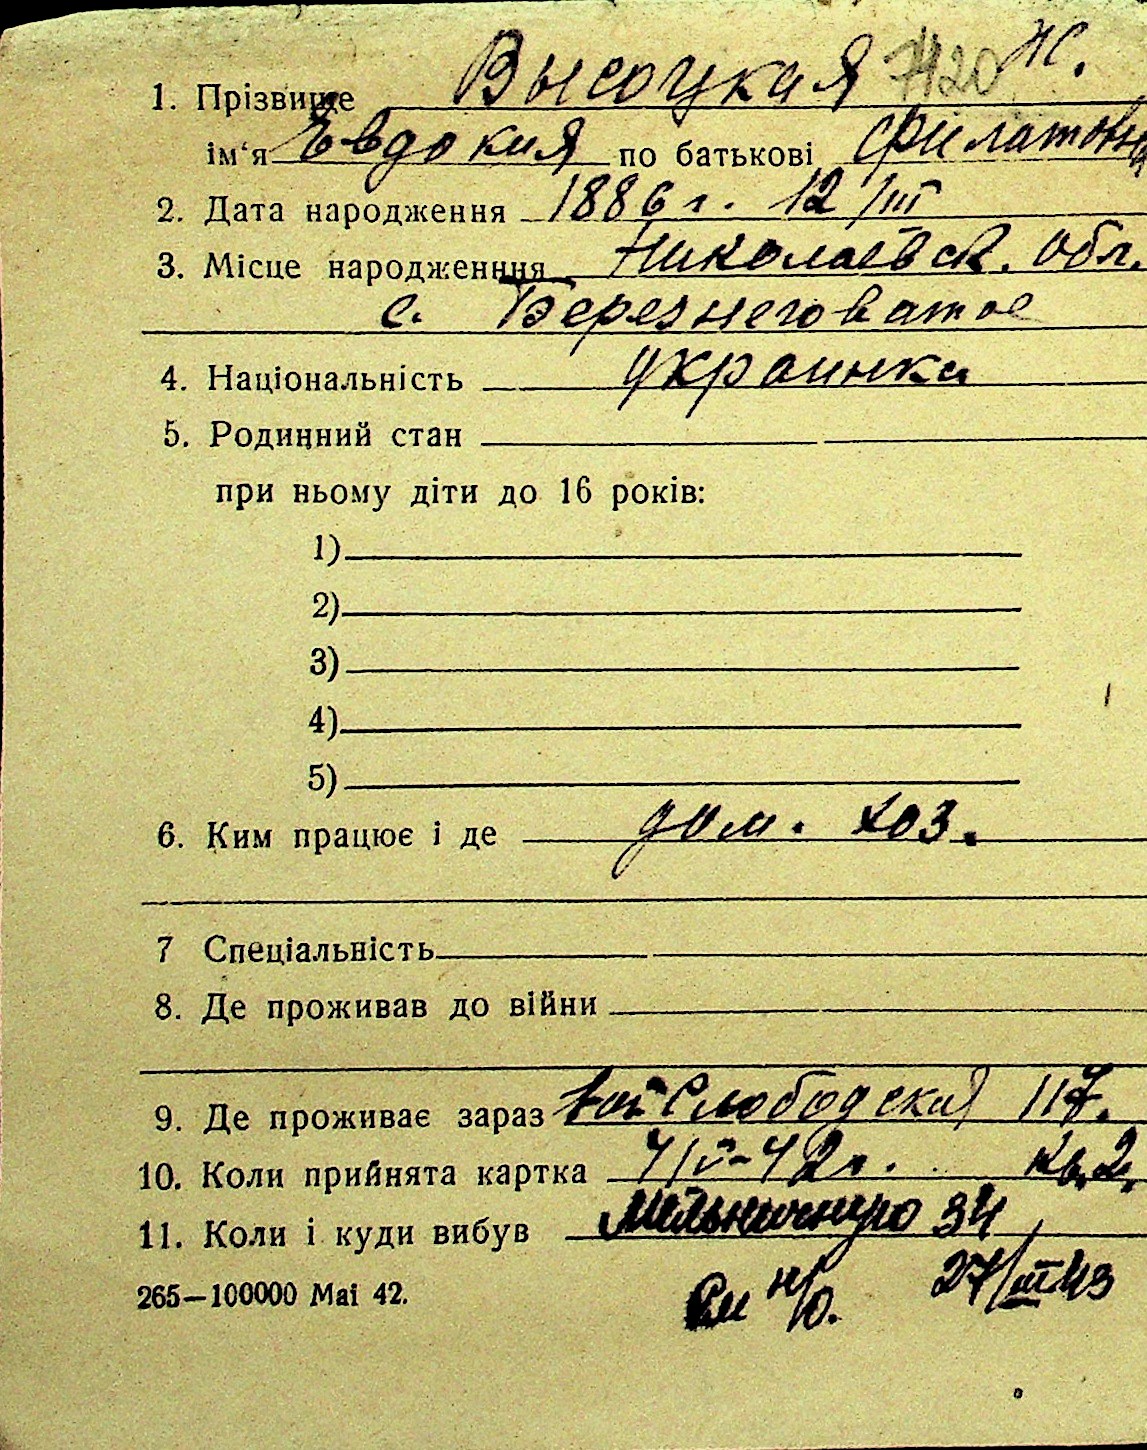 1. Прізвище Высоцкая 7420 Ж.
ім‘я Евдокия по батькові Филатовна
2. Дата народження 1886 г. 12/III
3. Місце народженння Николаевск. обл.
с. Березнеговатое
4. Національність украинка
5. Родинний стан
при ньому діти до 16 років:
1)
2)
3)
4)
5)
6. Ким працює і де дом. хоз.
7 Спеціальність
8. Де проживав до війни
9. Де проживає зараз Слободская 117.
10. Коли прийнята картка 4/V-42г. кв. 2.
11. Коли і куди вибув 34
265—100000 Маі 42. 27/III 43